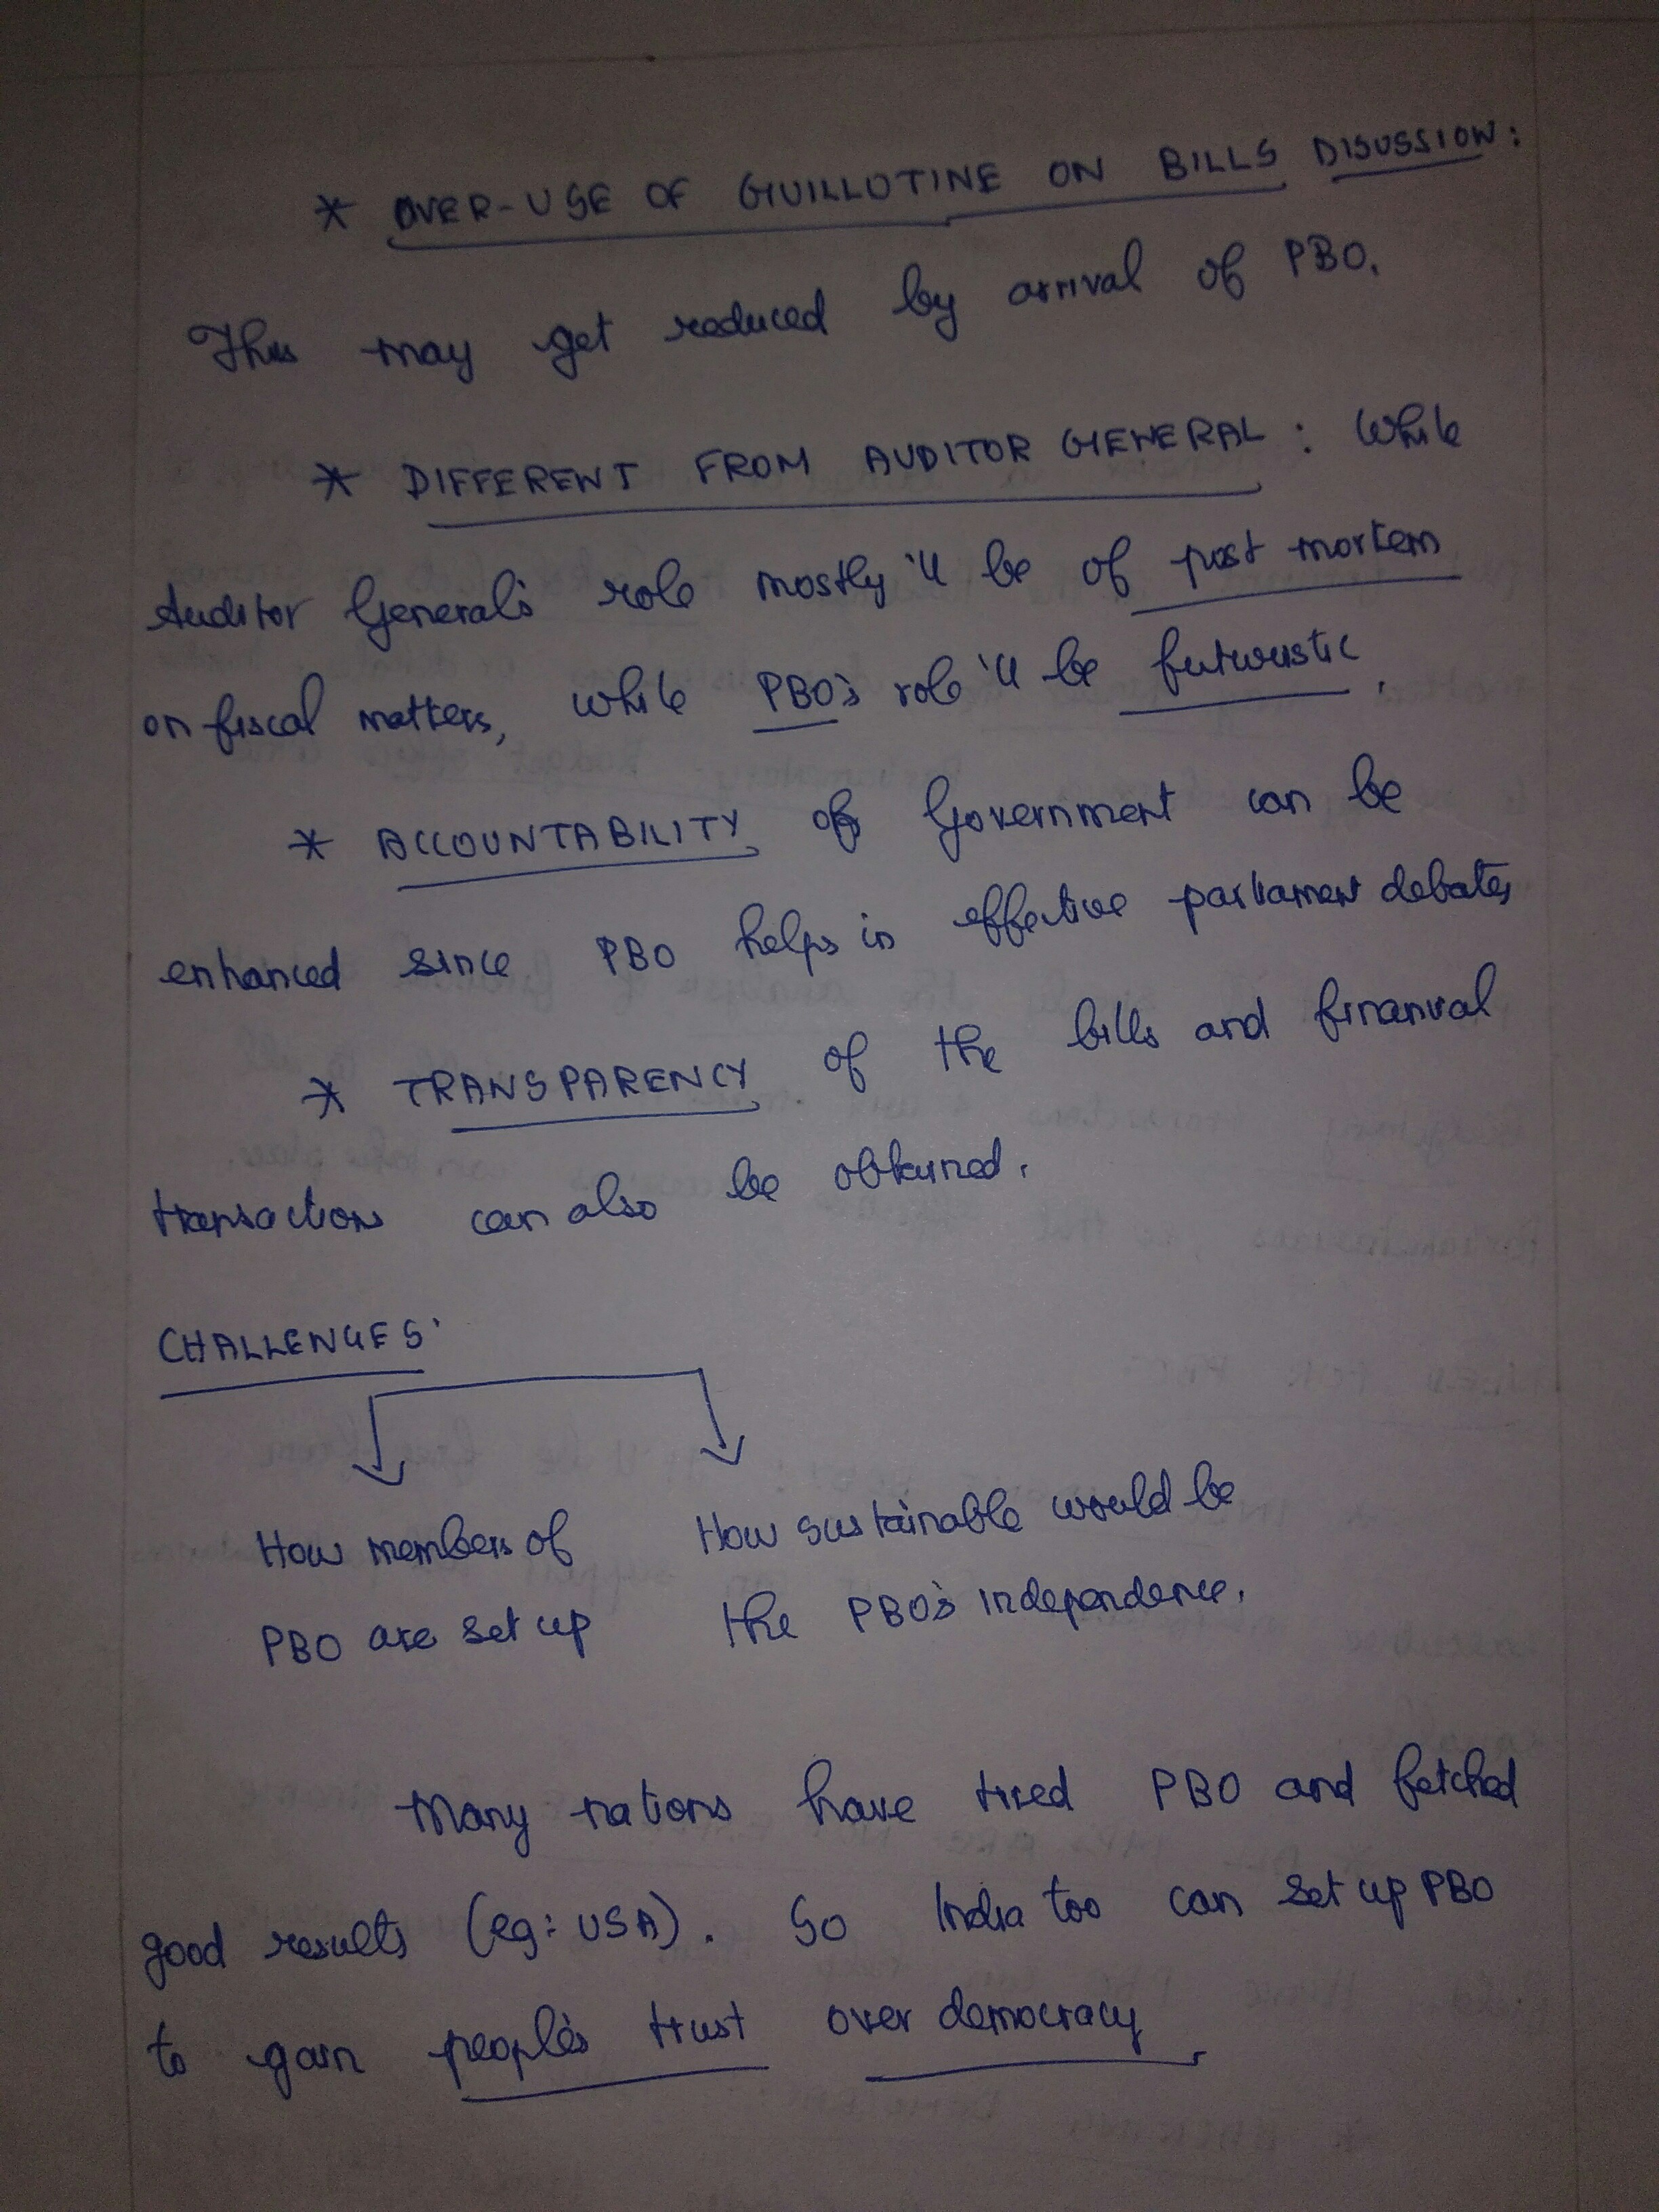 * OVER-USE OF GUILLOTINE ON BILLS DISUSSION:
This may get reduced by arrival of PBO.
* DIFFERENT FROM AUDITOR GENERAL: While
Auditor General's role mostly 'll be of post mortem
on fiscal matters, while PBO's role 'll be futuristic.
* ACCOUNTABILITY of Government can be
enhanced since PBO helps in effective parliament debates
* TRANSPARENCY of the bills and financial
transactions can also be obtained.
CHALLENGES:
How members of How sustainable would be
PBO are set up the PBO's independence.
Many nations have tried PBO and fetched
good results (eg: USA). So India too can set up PBO
to gain people's trust over democracy.